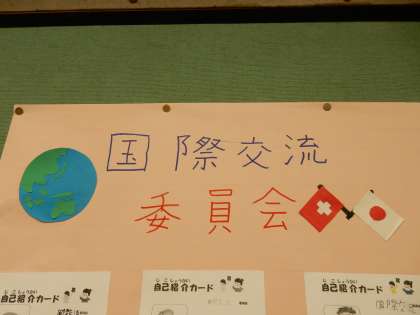 国際交流
委員会
じこしょうかい
自己紹介カード
じこしょうかい
自己紹介カード
じこしょうかい
自己紹介カード
国際交